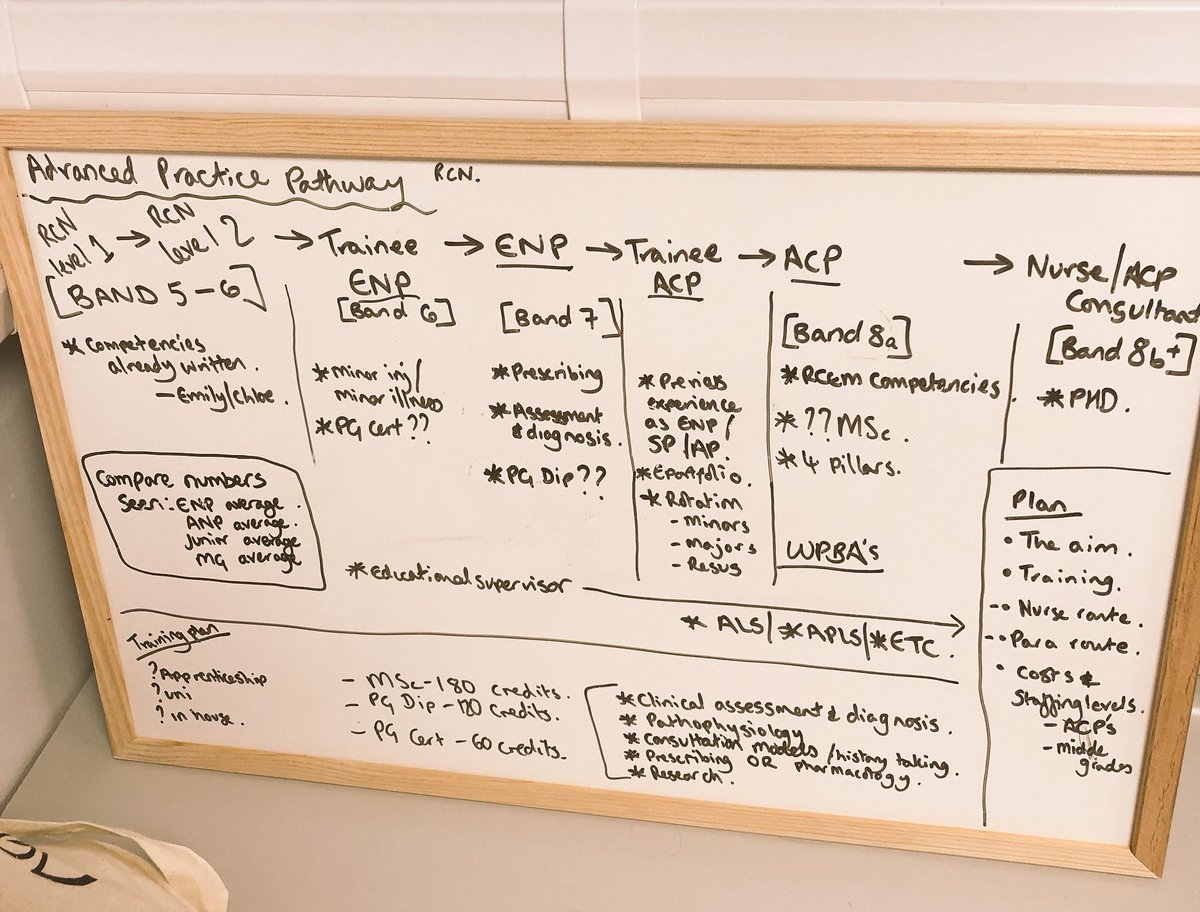 Advanced Practice Pathway RCN.
RCN level 1 → RCN level 2 → Trainee ENP → ENP → Trainee ACP → ACP → Nurse/ACP Consultant
[BAND 5-6]
* Competencies
already written.
- Emily/Chloe.
[Band 6]
* Minor inj/
minor illness
* PG Cert??
[Band 7]
* Prescribing
* Assessment
& diagnosis.
* PG Dip??
* Previous
experience
as ENP/
SP/AP.
* Eportfolio.
* Rotation
- Minors
- Majors
- Resus
[Band 8a]
* RCEM Competencies
* ??MSc.
* 4 pillars.
WPBA's
[Band 8b+]
* PHD.
Compare numbers
seen:- ENP average.
ANP average.
junior average
MG average
* Educational supervisor
* ALS/*APLS/*ETC.
Training plan
? Apprenticeship
? uni
? in house.
- MSc - 180 credits.
- PG Dip - 120 credits.
- PG Cert - 60 credits.
* Clinical assessment & diagnosis.
* Pathophysiology
* Consultation models/history taking.
* Prescribing OR pharmacology.
* Research.
Plan
• The aim.
• Training.
-• Nurse route.
-• Para route.
• Costs &
Staffing levels.
- ACP's
- middle
grades